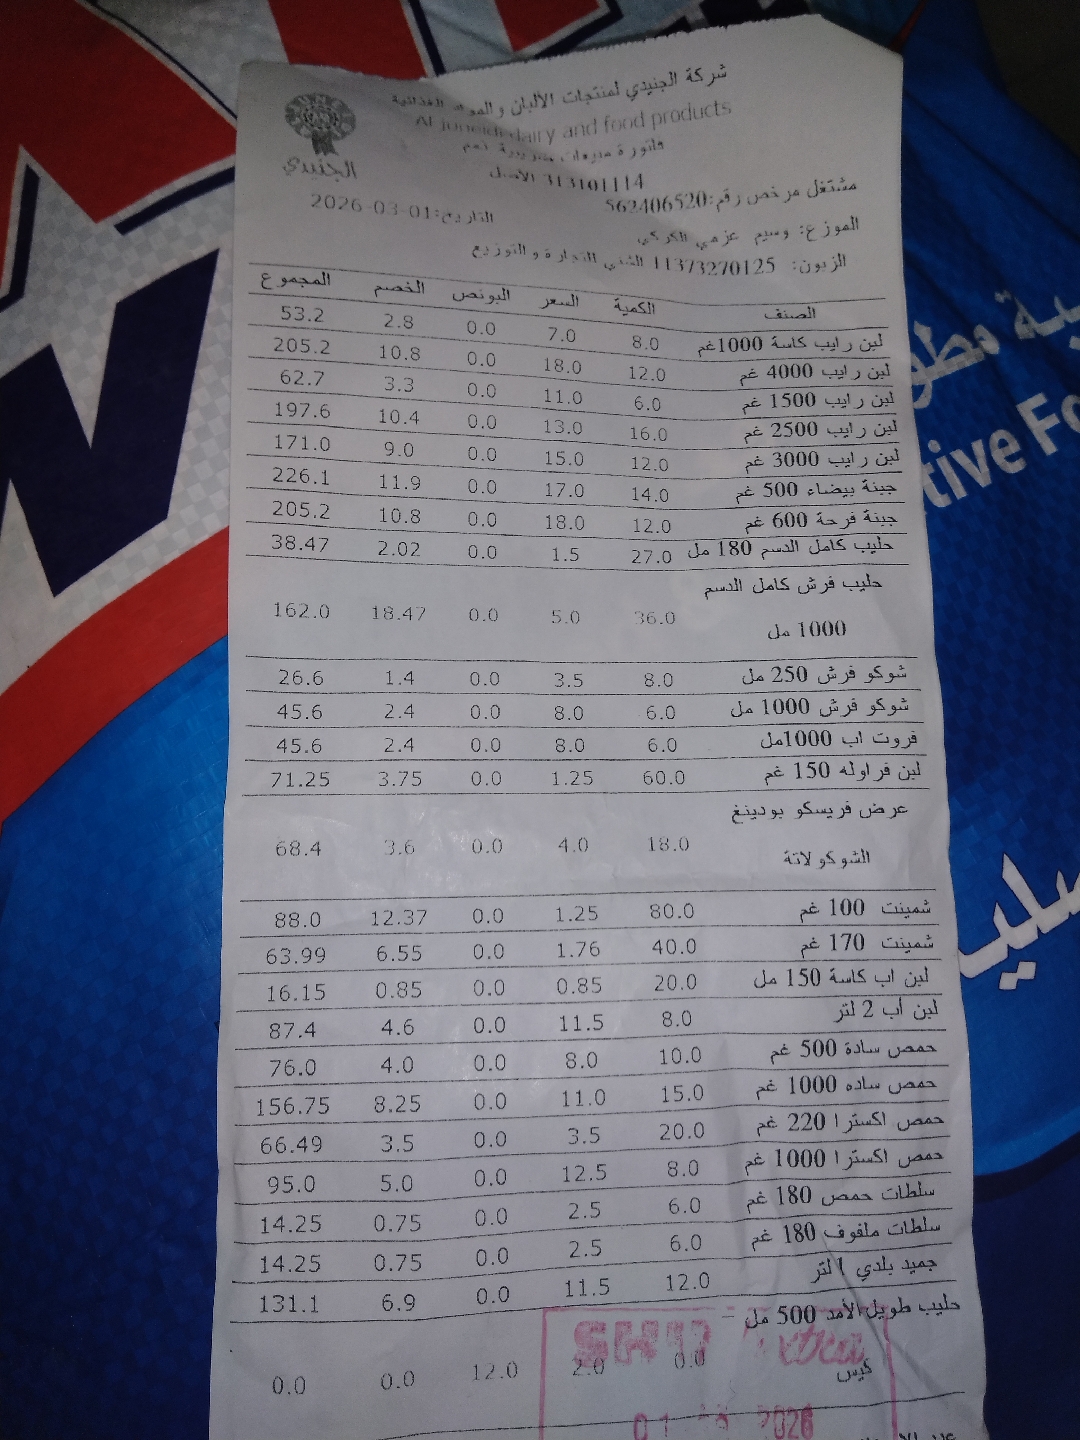 شركة الجنيدي لمنتجات الألبان والمواد الغذائية
Al juneidi dairy and food products
الجنيدي
فاتورة مبيعات ضريبية رقم
313101114 الأصل
مشتغل مرخص رقم: 562406520
التاريخ: 2026-03-01
الموزع: وسيم عزمي الكركي
الزبون: 11373270125 الشني للتجارة والتوزيع
الصنف الكمية السعر البونص الخصم المجموع
لبن رايب كاسة 1000غم 8.0 7.0 0.0 2.8 53.2
لبن رايب 4000 غم 12.0 18.0 0.0 10.8 205.2
لبن رايب 1500 غم 6.0 11.0 0.0 3.3 62.7
لبن رايب 2500 غم 16.0 13.0 0.0 10.4 197.6
لبن رايب 3000 غم 12.0 15.0 0.0 9.0 171.0
جبنة بيضاء 500 غم 14.0 17.0 0.0 11.9 226.1
جبنة فرحة 600 غم 12.0 18.0 0.0 10.8 205.2
حليب كامل الدسم 180 مل 27.0 1.5 0.0 2.02 38.47
حليب فرش كامل الدسم
1000 مل 36.0 5.0 0.0 18.47 162.0
شوكو فرش 250 مل 8.0 3.5 0.0 1.4 26.6
شوكو فرش 1000 مل 6.0 8.0 0.0 2.4 45.6
فروت اب 1000مل 6.0 8.0 0.0 2.4 45.6
لبن فراوله 150 غم 60.0 1.25 0.0 3.75 71.25
عرض فريسكو بودينغ
الشوكولاتة 18.0 4.0 0.0 3.6 68.4
شمينت 100 غم 80.0 1.25 0.0 12.37 88.0
شمينت 170 غم 40.0 1.76 0.0 6.55 63.99
لبن اب كاسة 150 مل 20.0 0.85 0.0 0.85 16.15
لبن أب 2 لتر 8.0 11.5 0.0 4.6 87.4
حمص سادة 500 غم 10.0 8.0 0.0 4.0 76.0
حمص ساده 1000 غم 15.0 11.0 0.0 8.25 156.75
حمص اكسترا 220 غم 20.0 3.5 0.0 3.5 66.49
حمص اكسترا 1000 غم 8.0 12.5 0.0 5.0 95.0
سلطات حمص 180 غم 6.0 2.5 0.0 0.75 14.25
سلطات ملفوف 180 غم 6.0 2.5 0.0 0.75 14.25
جميد بلدي 1 لتر 12.0 11.5 0.0 6.9 131.1
حليب طويل الأمد 500 مل -
كيس 0.0 2.0 12.0 0.0 0.0
Extra
2026